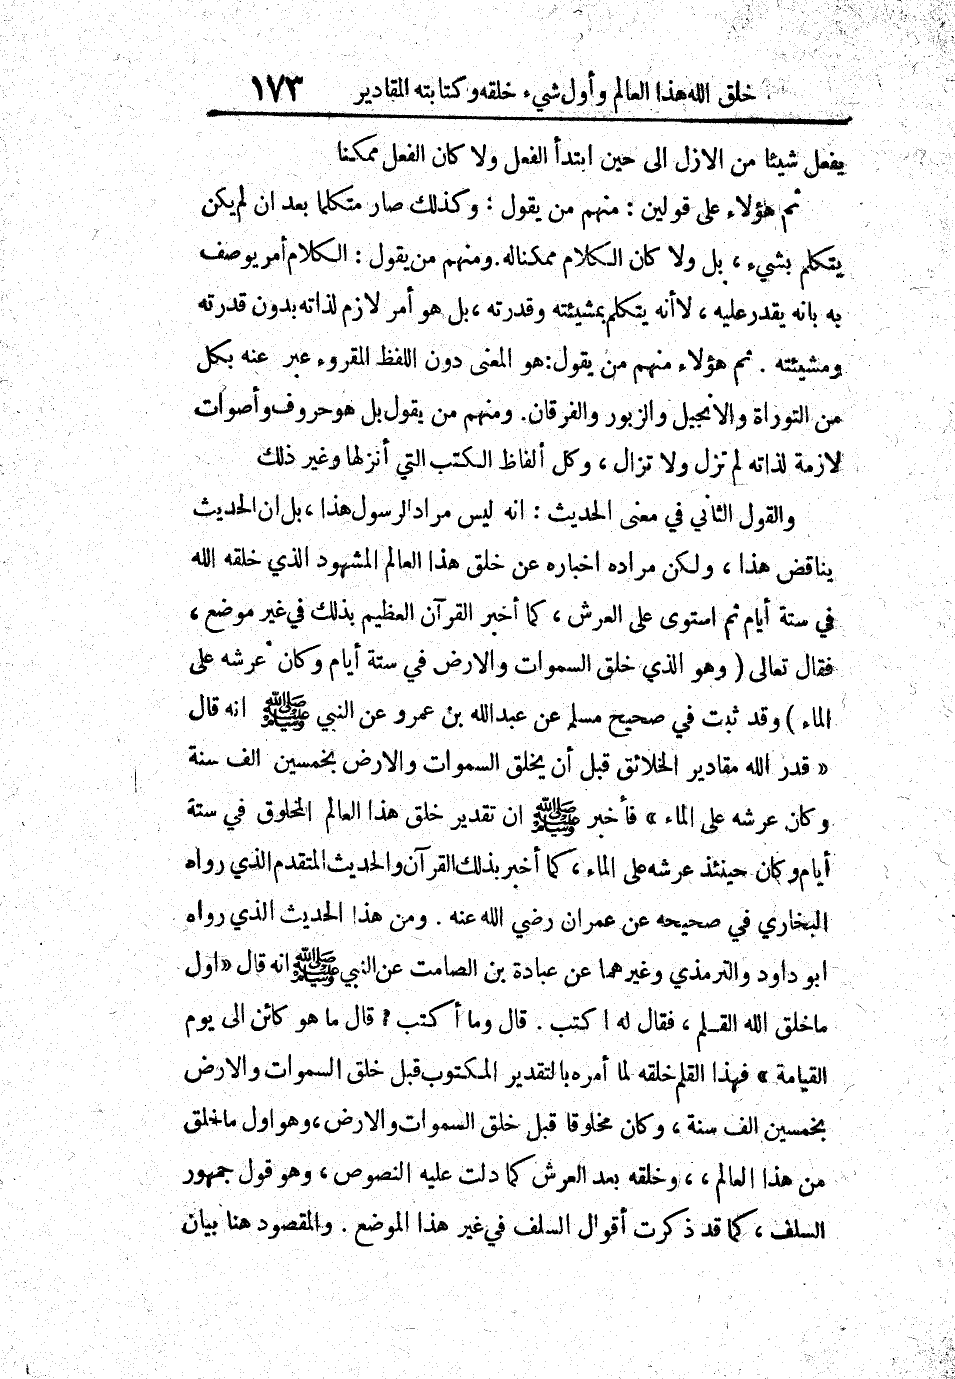 خلق الله هذا العالم وأول شيء خلقه وكتابته المقادير ١٧٣
يفعل شيئا من الازل الى حين ابتدأ الفعل ولا كان الفعل ممكنا
ثم هؤلاء على قولين : منهم من يقول : وكذلك صار متكلما بعد ان لم يكن
يتكلم بشيء ، بل ولا كان الكلام ممكنا له . ومنهم من يقول : الكلام أمر يوصف
به بانه يقدر عليه ، لا أنه يتكلم بمشيئته وقدرته ، بل هو أمر لازم لذاته بدون قدرته
ومشيئته . ثم هؤلاء منهم من يقول : هو المعنى دون اللفظ المقروء عبر عنه بكل
من التوراة والانجيل والزبور والفرقان . ومنهم من يقول بل هو حروف وأصوات
لازمة لذاته لم تزل ولا تزال ، وكل ألفاظ الكتب التي أنزلها وغير ذلك
والقول الثاني في معنى الحديث : انه ليس مراد الرسول هذا ، بل ان الحديث
يناقض هذا ، ولكن مراده اخباره عن خلق هذا العالم المشهود الذي خلقه الله
في ستة أيام ثم استوى على العرش ، كما أخبر القرآن العظيم بذلك في غير موضع ،
فقال تعالى ( وهو الذي خلق السموات والارض في ستة أيام وكان عرشه على
الماء ) وقد ثبت في صحيح مسلم عن عبدالله بن عمرو عن النبي ﷺ انه قال
« قدر الله مقادير الخلائق قبل أن يخلق السموات والارض بخمسين الف سنة
وكان عرشه على الماء » فأخبر ﷺ ان تقدير خلق هذا العالم المخلوق في ستة
أيام وكان حينئذ عرشه على الماء ، كما أخبر بذلك القرآن والحديث المتقدم الذي رواه
البخاري في صحيحه عن عمران رضي الله عنه . ومن هذا الحديث الذي رواه
ابو داود والترمذي وغيرهما عن عبادة بن الصامت عن النبي ﷺ انه قال « اول
ما خلق الله القلم ، فقال له اكتب . قال وما أكتب ؟ قال ما هو كائن الى يوم
القيامة » فهذا القلم خلقه لما أمره بالتقدير المكتوب قبل خلق السموات والارض
بخمسين الف سنة ، وكان مخلوقا قبل خلق السموات والارض ، وهو اول ما خلق
من هذا العالم ، ، وخلقه بعد العرش كما دلت عليه النصوص ، وهو قول جمهور
السلف ، كما قد ذكرت أقوال السلف في غير هذا الموضع . والمقصود هنا بيان